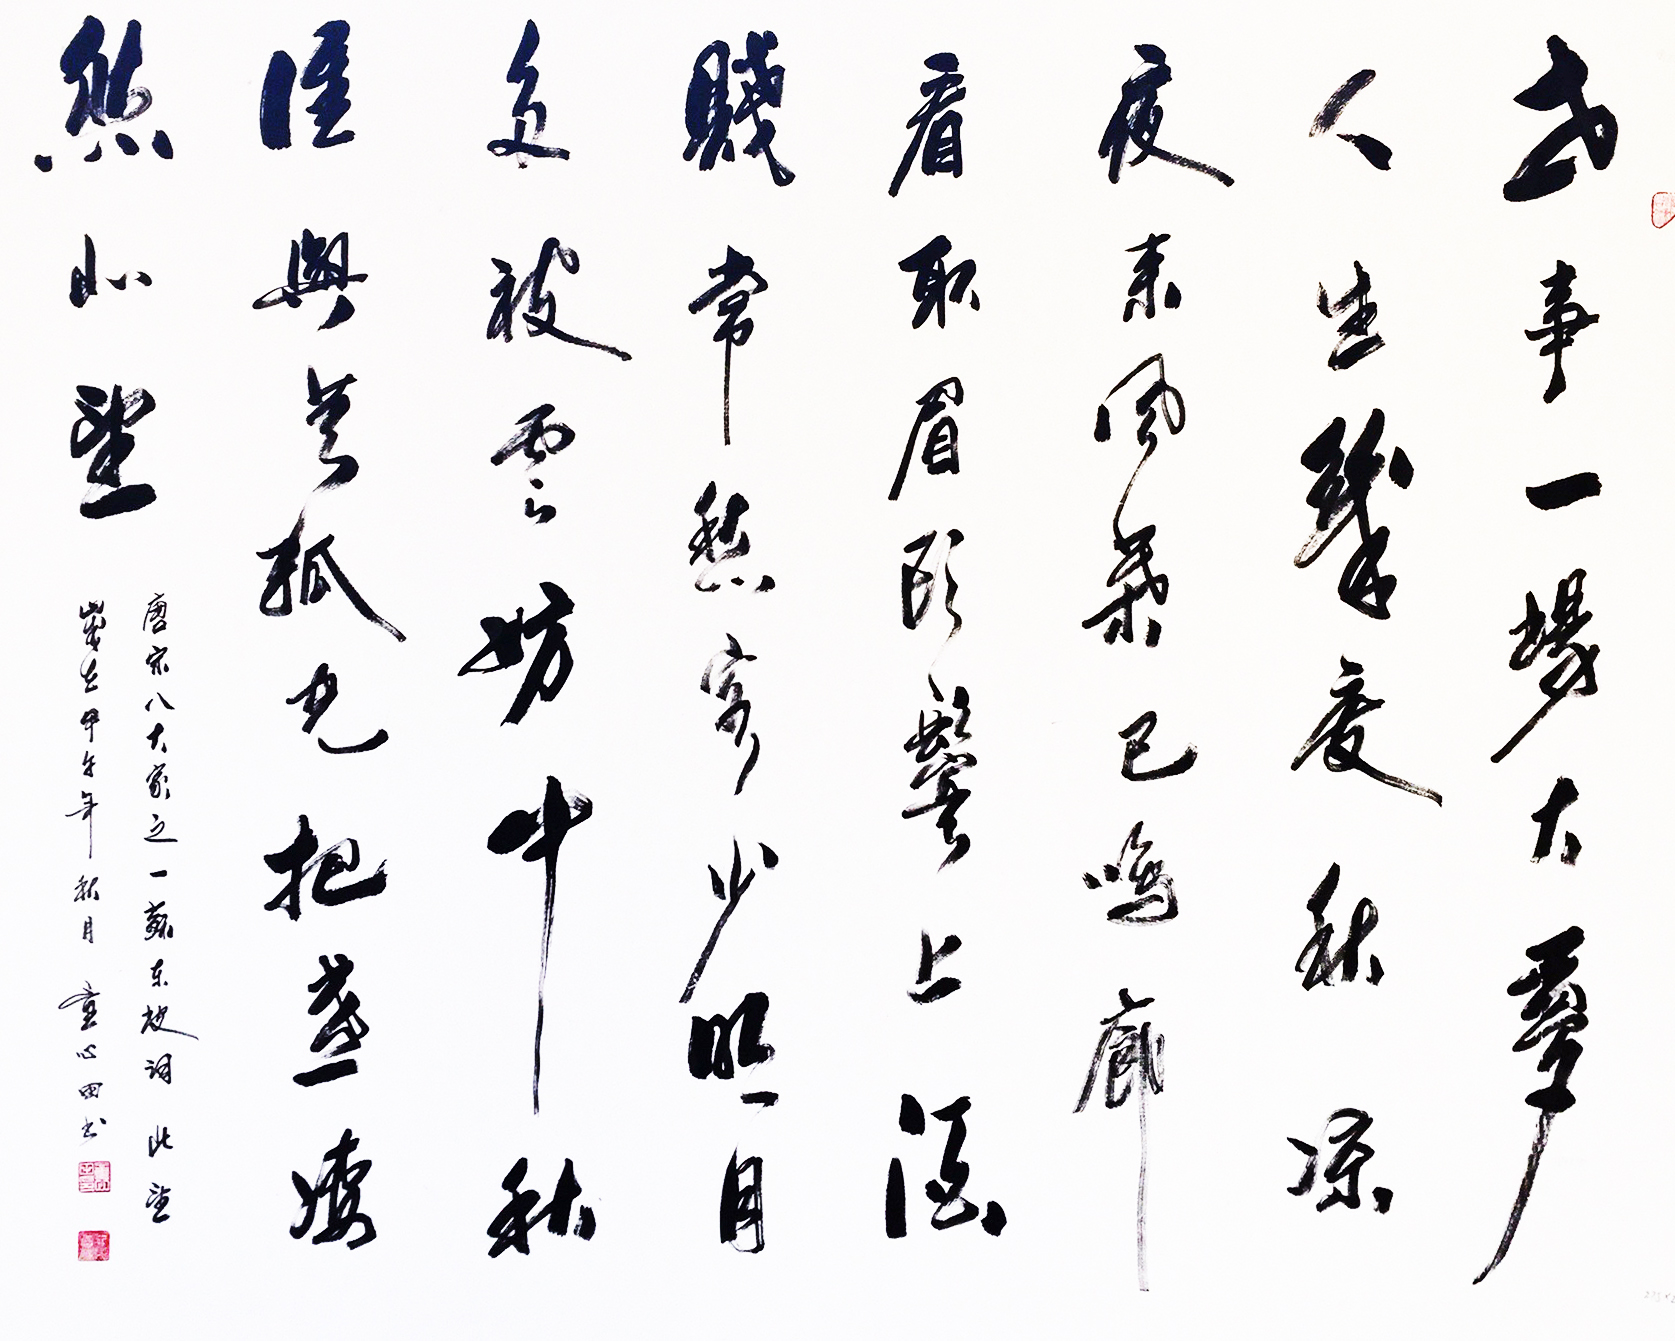 世事一場大夢
人生幾度秋涼
夜来風葉已鳴廊
看取眉頭鬢上酒
賤常愁客少明月
多被雲妨中秋
誰與共孤光把盞凄
然北望
唐宋八大家之一蘇东坡词北望
歲在甲午年秋月童心田书